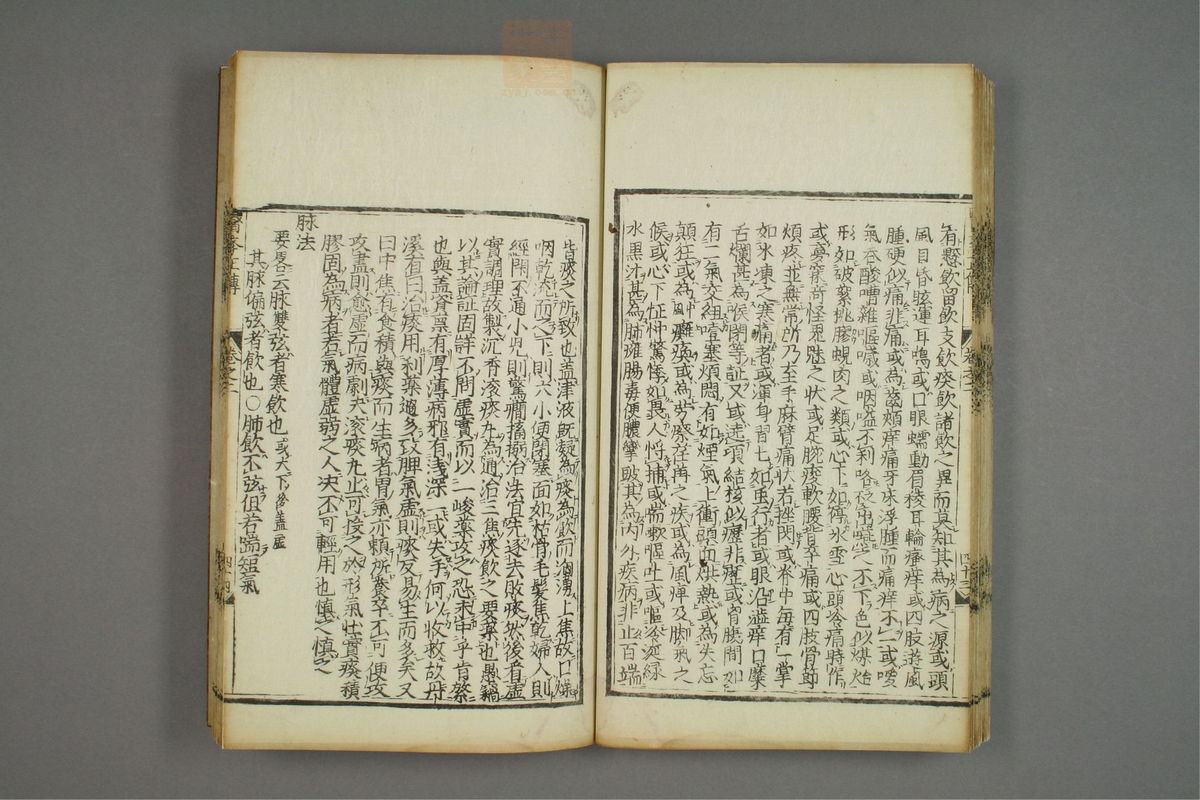 有懸飲留飲支飲痰飲諸飲之異而莫知其為病之源或頭
風目昏眩運耳鳴或口眼蠕動眉稜耳輪瘙痒或四肢遊風
腫硬似痛非痛或為齒頰痒痛牙床浮腫而痛痒不一或噯
氣吞酸嘈雜嘔噦或咽嗌不利咯之不出嚥之不下色似煤炲
形如破絮桃膠蜆肉之類或心下如停氷雪心頭冷痛時作
或夢寐奇怪鬼魅之狀或足腕痠軟腰背卒痛或四肢骨節
煩疼並無常所乃至手麻臂痛狀若挫閃或脊中每有一掌
如氷凍之寒痛者或渾身習七如虫行者或眼沿澁痒口糜
舌爛甚為喉閉等証又或遶項結核似癧非癧或胷膓間如
有二氣交紐噎塞煩悶有如煙氣上衝頭面烘熱或為失忘
顛狂或為中風癱瘓或為勞瘵荏苒之疾或為風痺及脚氣之
候或心下怔忡驚悸如畏人将捕或喘嗽嘔吐或嘔冷涎綠
水黒汁甚為肺癰腸毒便膿攣跛其為内外疾病非止百端
皆痰之所致也盖津液既凝為痰為飲而洶湧上焦故口燥
咽乾流而之下則大小便閉塞面如枯骨毛髪焦乾婦人則
經閉不通小兒則驚癇搐搦治法宜先逐去敗痰然後看虚
實調理故製沉香滚痰丸為通治三焦痰飲之要藥也愚竊
以其論証固詳不問虚實而以一峻藥攻之恐未中乎肯綮
也與盖斉稟有厚薄病邪有浅深一或失手何以收救故丹
溪有曰治痰用利藥過多致脾氣虚則痰反易生而多矣又
曰中焦有食積與痰而生病者胃氣亦頼所養卒不可便攻
攻盡則愈虚而病劇夫滚痰丸止可投之於形氣壮實痰積
膠固為病者若氣體虚弱之人决不可輕用也慎之慎之
脉法
要畧云脉雙弦者寒飲也或大下後盖虚
其脉偏弦者飲也〇肺飲不弦但若喘短氣